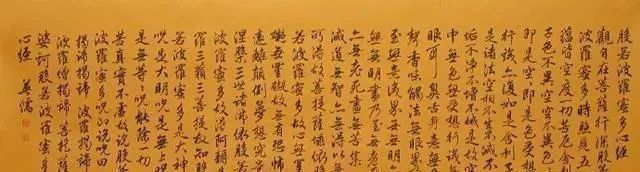 般若波羅蜜多心經
觀自在菩薩行深般若
波羅蜜多時照見五
蘊皆空度一切苦厄舍利
子色不異空空不異色色
即是空空即是色受想
行識亦復如是舍利子
是諸法空相不生不滅不
垢不淨不增不減是故空
中無色無受想行識無
眼耳鼻舌身意無色
聲香味觸法無眼界乃
至無意識界無無明亦
無無明盡乃至無老死
亦無老死盡無苦集
滅道無智亦無得以無
所得故菩提薩埵依般
若波羅蜜多故心無罣
礙無罣礙故無有恐怖
遠離顛倒夢想究竟
涅槃三世諸佛依般若
波羅蜜多故得阿耨多
羅三藐三菩提故知般
若波羅蜜多是大神
咒是大明咒是無上咒
是無等等咒能除一切
苦真實不虛故說般若
波羅蜜多咒即說咒曰
揭諦揭諦波羅揭諦
波羅僧揭諦菩提薩
婆訶般若波羅蜜多
心經 英儒